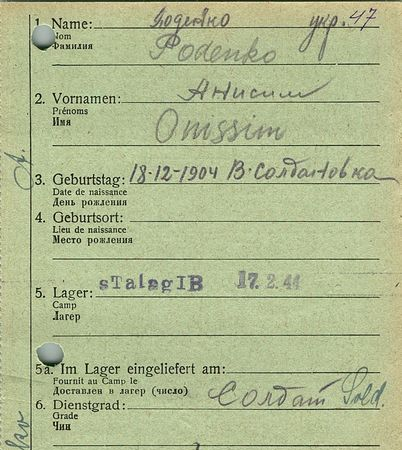 1. Name: Воденко укр. 47
Nom
Фамилия Podenko
2. Vornamen: Анисим
Prénoms
Имя Onissim
3. Geburtstag: 18-12-1904 В-Солтановка
Date de naissance
День рождения
4. Geburtsort:
Lieu de naissance
Место рождения
5. Lager: sTalagIB 17.2.44
Camp
Лагер
5a. Im Lager eingeliefert am:
Fournit au Camp le
Доставлен в лагер (число)
6. Dienstgrad: Солдат Sold.
Grade
Чин